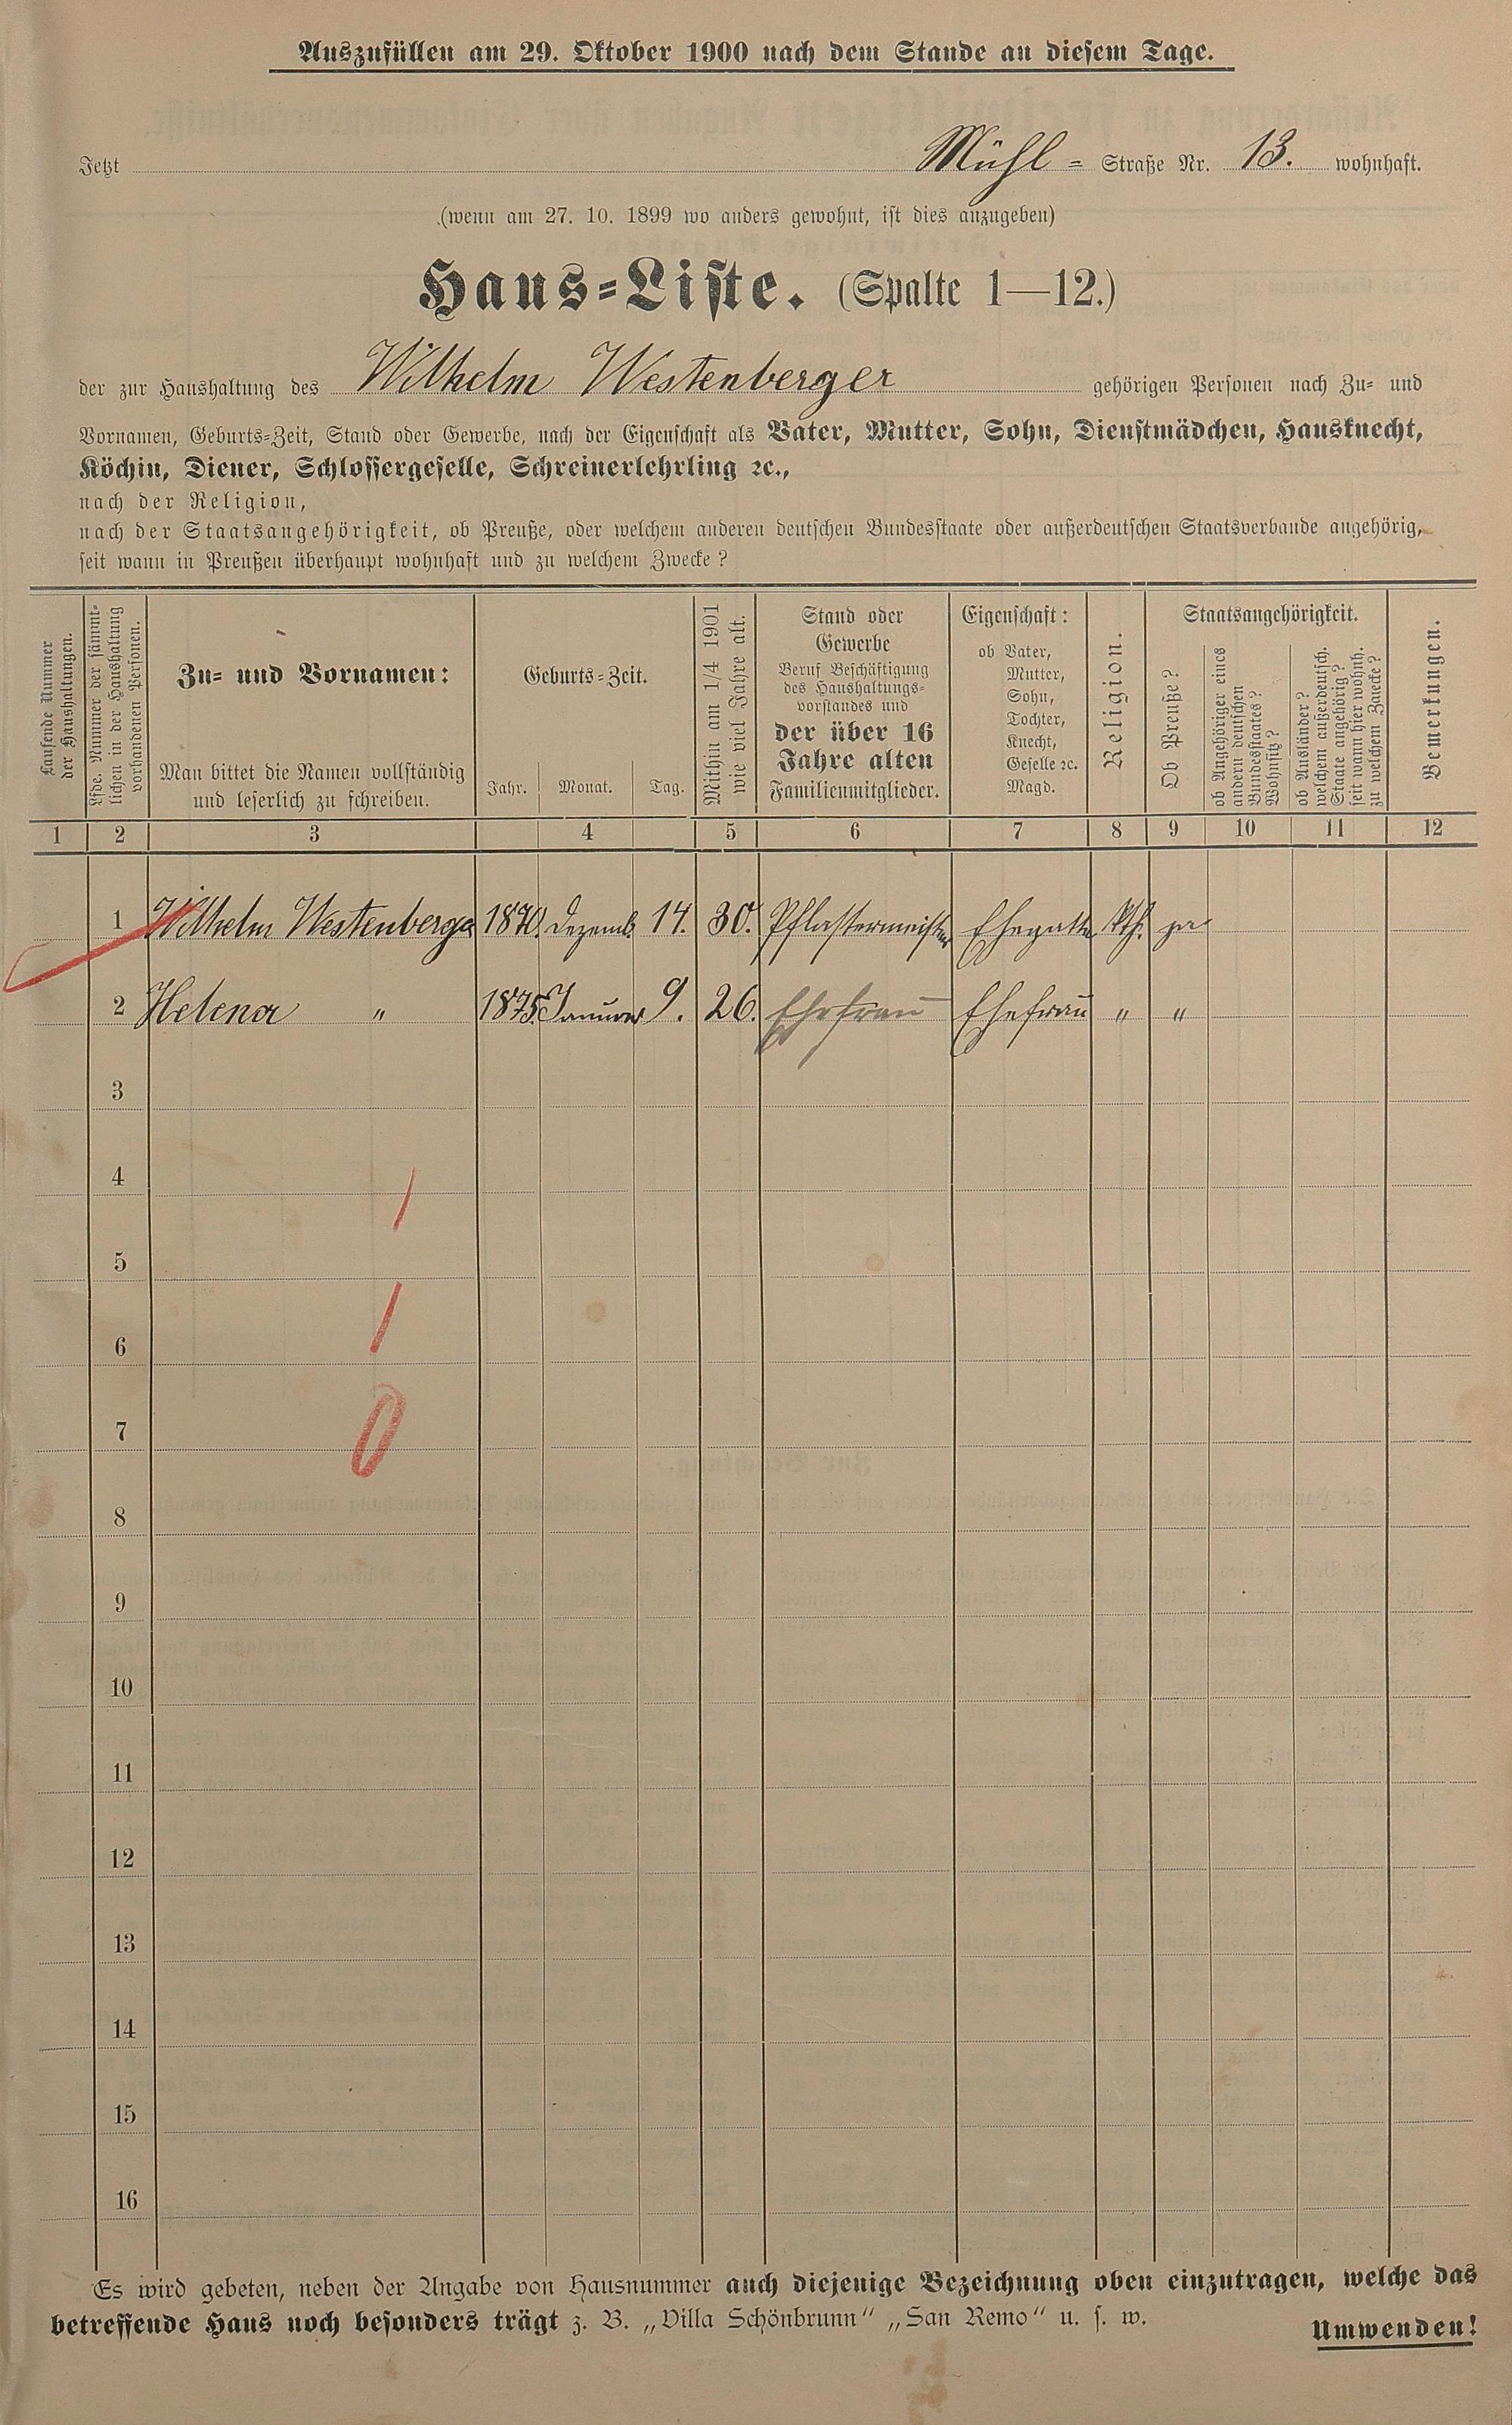 Auszufüllen am 29. Oktober 1900 nach dem Stande an diesem Tage.
Jetzt Mühl- Straße Nr. 13. wohnhaft.
(wenn am 27. 10. 1899 wo anders gewohnt, ist dies anzugeben)
Haus-Liste. (Spalte 1—12.)
der zur Haushaltung des Wilhelm Westenberger gehörigen Personen nach Zu- und
Vornamen, Geburts-Zeit, Stand oder Gewerbe, nach der Eigenschaft als Vater, Mutter, Sohn, Dienstmädchen, Hausknecht,
Köchin, Diener, Schlossergeselle, Schreinerlehrling ꝛc.,
nach der Religion,
nach der Staatsangehörigkeit, ob Preuße, oder welchem anderen deutschen Bundesstaate oder außerdeutschen Staatsverbande angehörig,
seit wann in Preußen überhaupt wohnhaft und zu welchem Zwecke?
Laufende Nummer
der Haushaltungen.
Lfde. Nummer der sämmt-
lichen in der Haushaltung
vorhandenen Personen.
Zu- und Vornamen:
Man bittet die Namen vollständig
und leserlich zu schreiben.
Geburts-Zeit.
Jahr. Monat. Tag.
Mithin am 1/4 1901
wie viel Jahre alt.
Stand oder
Gewerbe
Beruf Beschäftigung
des Haushaltungs-
vorstandes und
der über 16
Jahre alten
Familienmitglieder.
Eigenschaft:
ob Vater,
Mutter,
Sohn,
Tochter,
Knecht,
Geselle ꝛc.
Magd.
Religion.
Staatsangehörigkeit.
Ob Preuße?
ob Angehöriger eines
andern deutschen
Bundesstaates?
Wohnsitz?
ob Ausländer?
welchem außerdeutsch.
Staate angehörig?
seit wann hier wohnh.
zu welchem Zwecke?
Bemerkungen.
1 2 3 4 5 6 7 8 9 10 11 12
1 Wilhelm Westenberger 1870. Dezemb. 14. 30. Pflastermeister Ehegatte kth. ja
2 Helena " 1875. Januar 9. 26. Ehefrau Ehefrau " "
3
4
1
5
1
6
0
7
8
9
10
11
12
13
14
15
16
Es wird gebeten, neben der Angabe von Hausnummer auch diejenige Bezeichnung oben einzutragen, welche das
betreffende Haus noch besonders trägt z. B. „Villa Schönbrunn" „San Remo" u. s. w.
Umwenden!